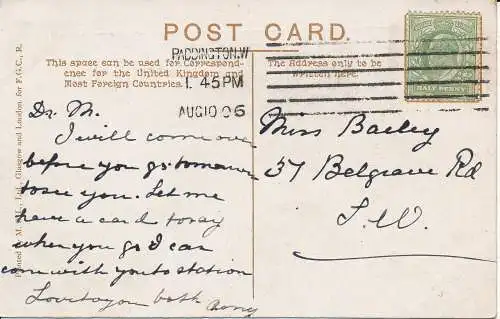 POST CARD.
PADDINGTON.W
1.45PM
AUG 10 06
This space can be used for Correspond-
ence for the United Kingdom and
Most Foreign Countries.
The Address only to be
written here.
HALF PENNY
Dr. M.
I will come over
before you go tomorrow
to see you. Let me
have a card today
when you go I can
come with you to station
Love to you both
Miss Bailey
37 Belgrave Rd
S.W.
Glasgow and London, for F.G.C., R.